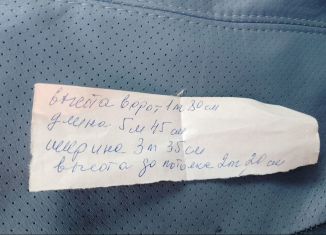 высота ворот 1м 80см
длина 5м 45см
ширина 3м 35см
высота до потолка 2м 20см